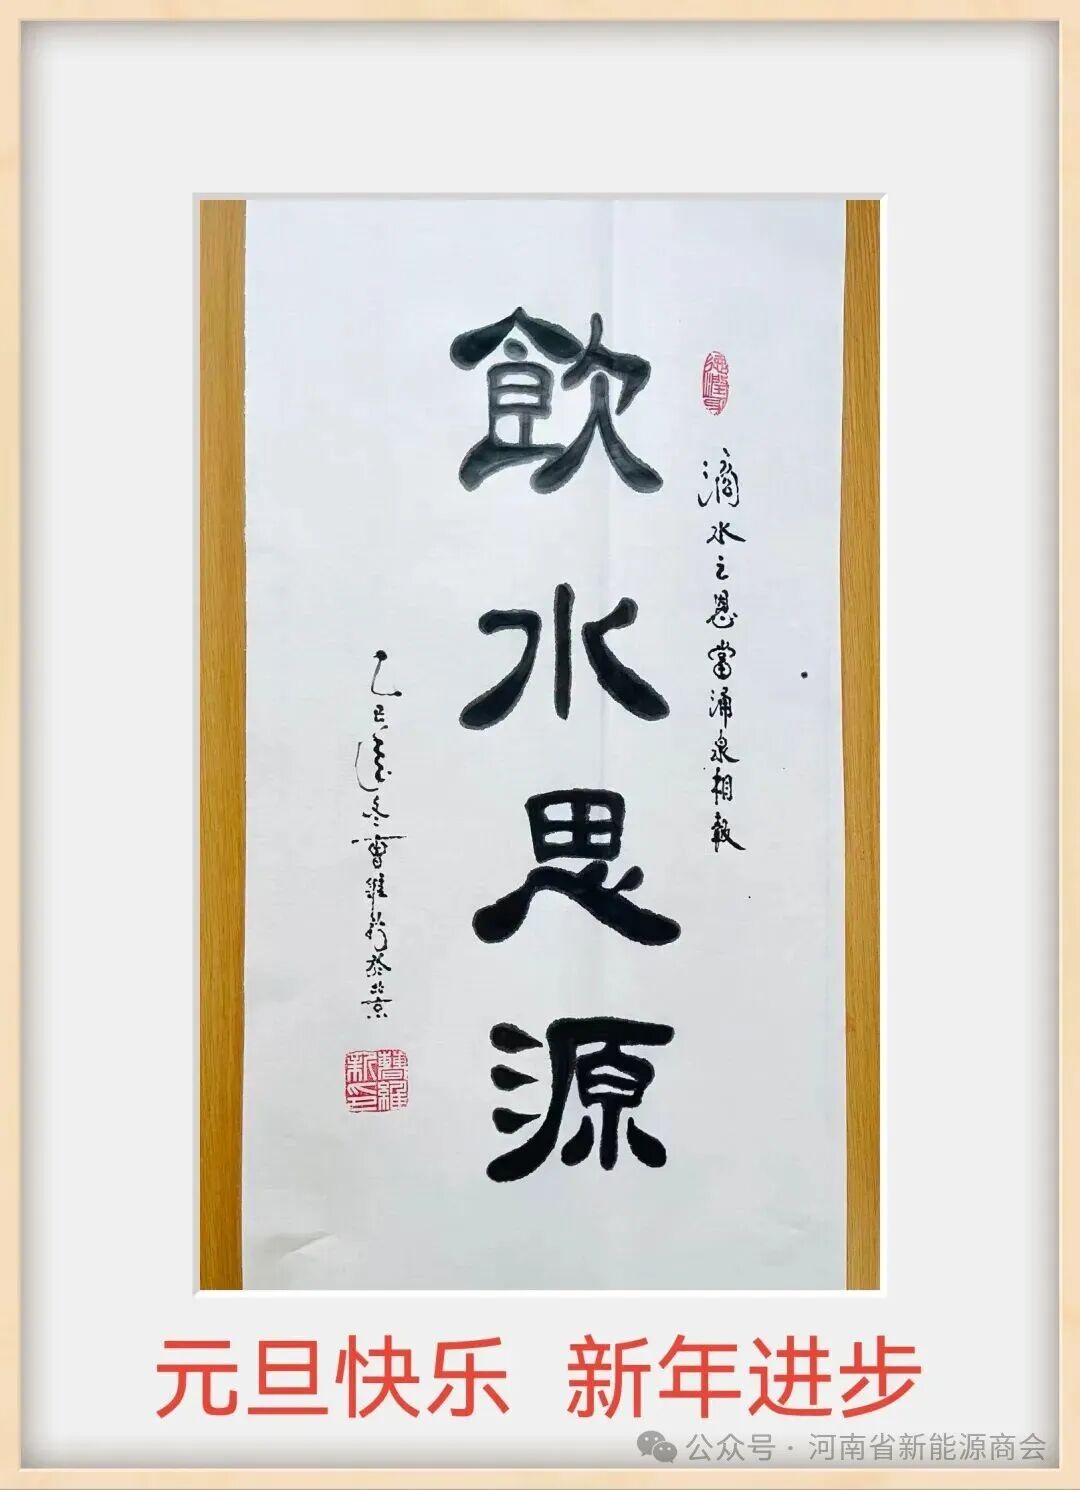 飲水思源
滴水之恩當涌泉相報
乙巳
冬曹維新於北京
元旦快乐 新年进步
公众号·河南省新能源商会